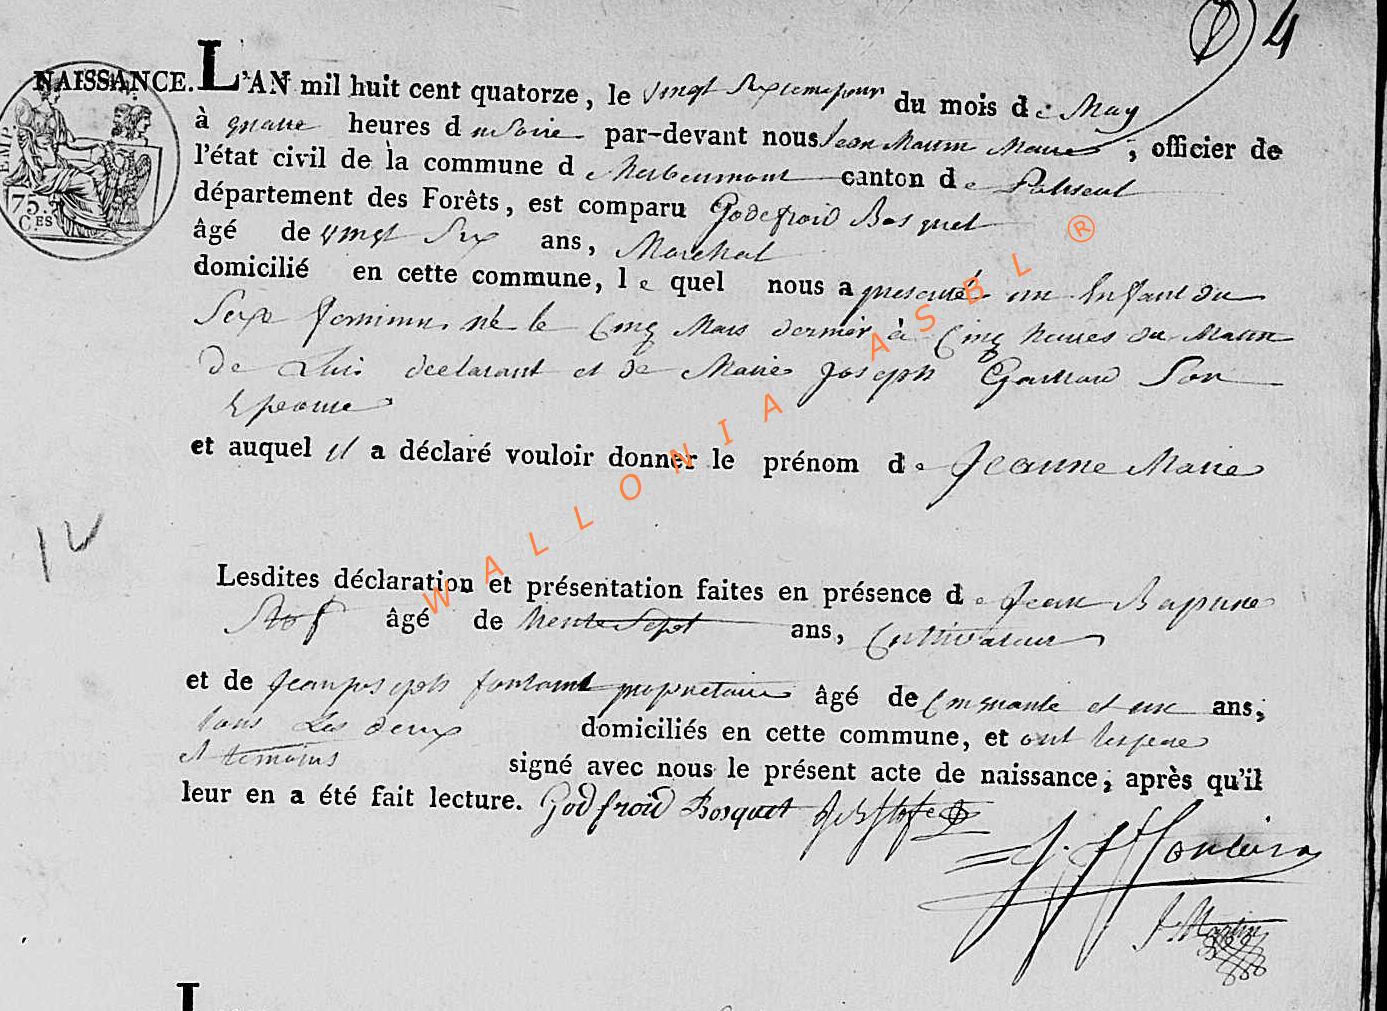 4
NAISSANCE. L'AN mil huit cent quatorze, le vingt sixiemejour du mois de May
à quatre heures du soire par-devant nous Jean Martin Maire, officier de
l'état civil de la commune d'herbeumont canton de Paliseul
département des Forêts, est comparu Godefroid Bosquet
âgé de vingt six ans, Marchal
domicilié en cette commune, le quel nous a presenté un Enfant du
Sexe feminin né le Cinq Mars dernier à Cinq heures du Matin
de Lui declarant et de Marie Joseph Son
Epouse
et auquel il a déclaré vouloir donner le prénom de Jeanne Marie
Lesdites déclaration et présentation faites en présence de Jean Baptiste
Stof âgé de trente Sept ans, Cultivateur
et de Jean joseph proprietaire âgé de Cinquante et un ans,
tous Les deux domiciliés en cette commune, et ont les pere
et temoins signé avec nous le présent acte de naissance, après qu'il
leur en a été fait lecture. Godfroid Bosquet
J. Martin
EMP.
75.
CES
WALLONIA ASBL ®
L